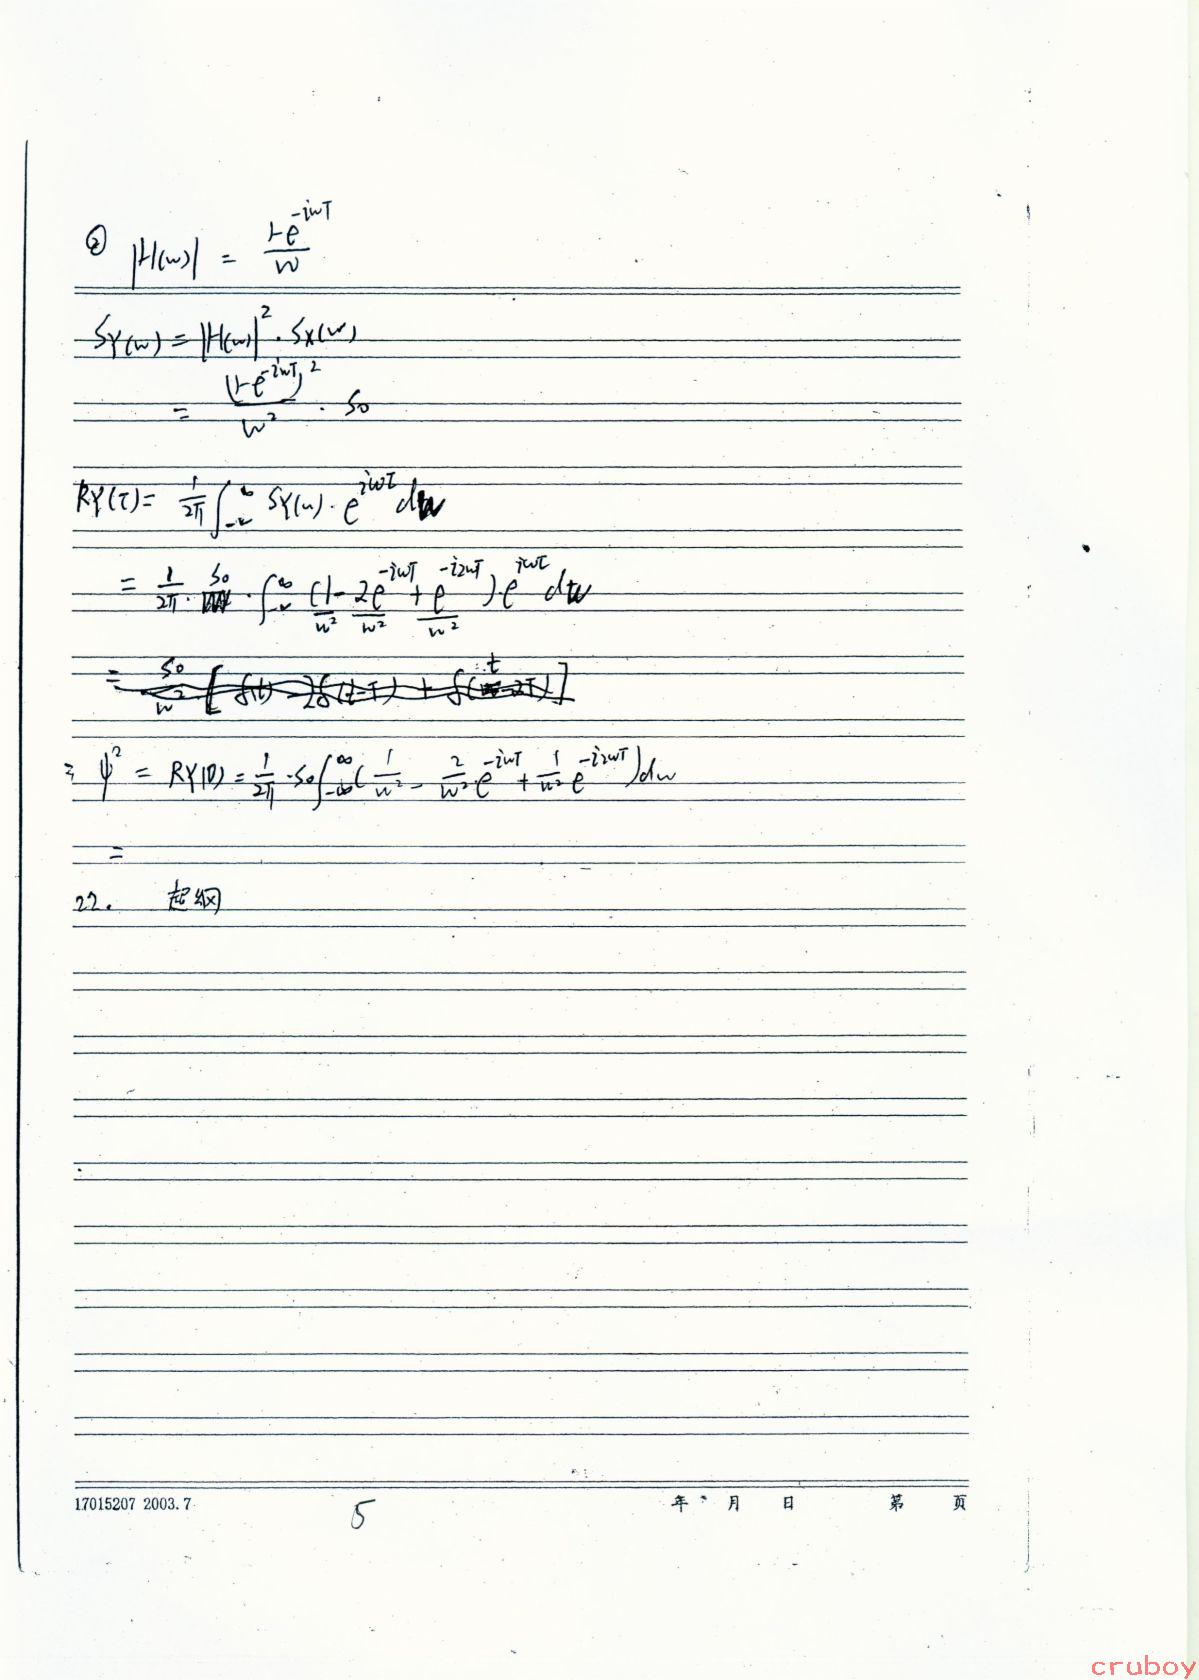 ② |H(w)| = \frac{1-e^{-iwT}}{w}
S_Y(w) = |H(w)|^2 · S_X(w)
= \frac{(1-e^{-iwT})^2}{w^2} · S_0
R_Y(τ) = \frac{1}{2π} \int_{-∞}^{∞} S_Y(w) · e^{iwτ} dw
= \frac{1}{2π} · S_0 · \int_{-∞}^{∞} (\frac{1}{w^2} - \frac{2e^{-iwT}}{w^2} + \frac{e^{-i2wT}}{w^2}) · e^{iwτ} dw
= \frac{S_0}{w^2} [δ(t) - 2δ(t-T) + δ(t-2T)]
∴ ψ^2 = R_Y(0) = \frac{1}{2π} · S_0 \int_{-∞}^{∞} (\frac{1}{w^2} - \frac{2}{w^2} · e^{-iwT} + \frac{1}{w^2} e^{-i2wT}) dw
=
22. 起纲
17015207 2003.7 5 年 月 日 第 页
cruboy